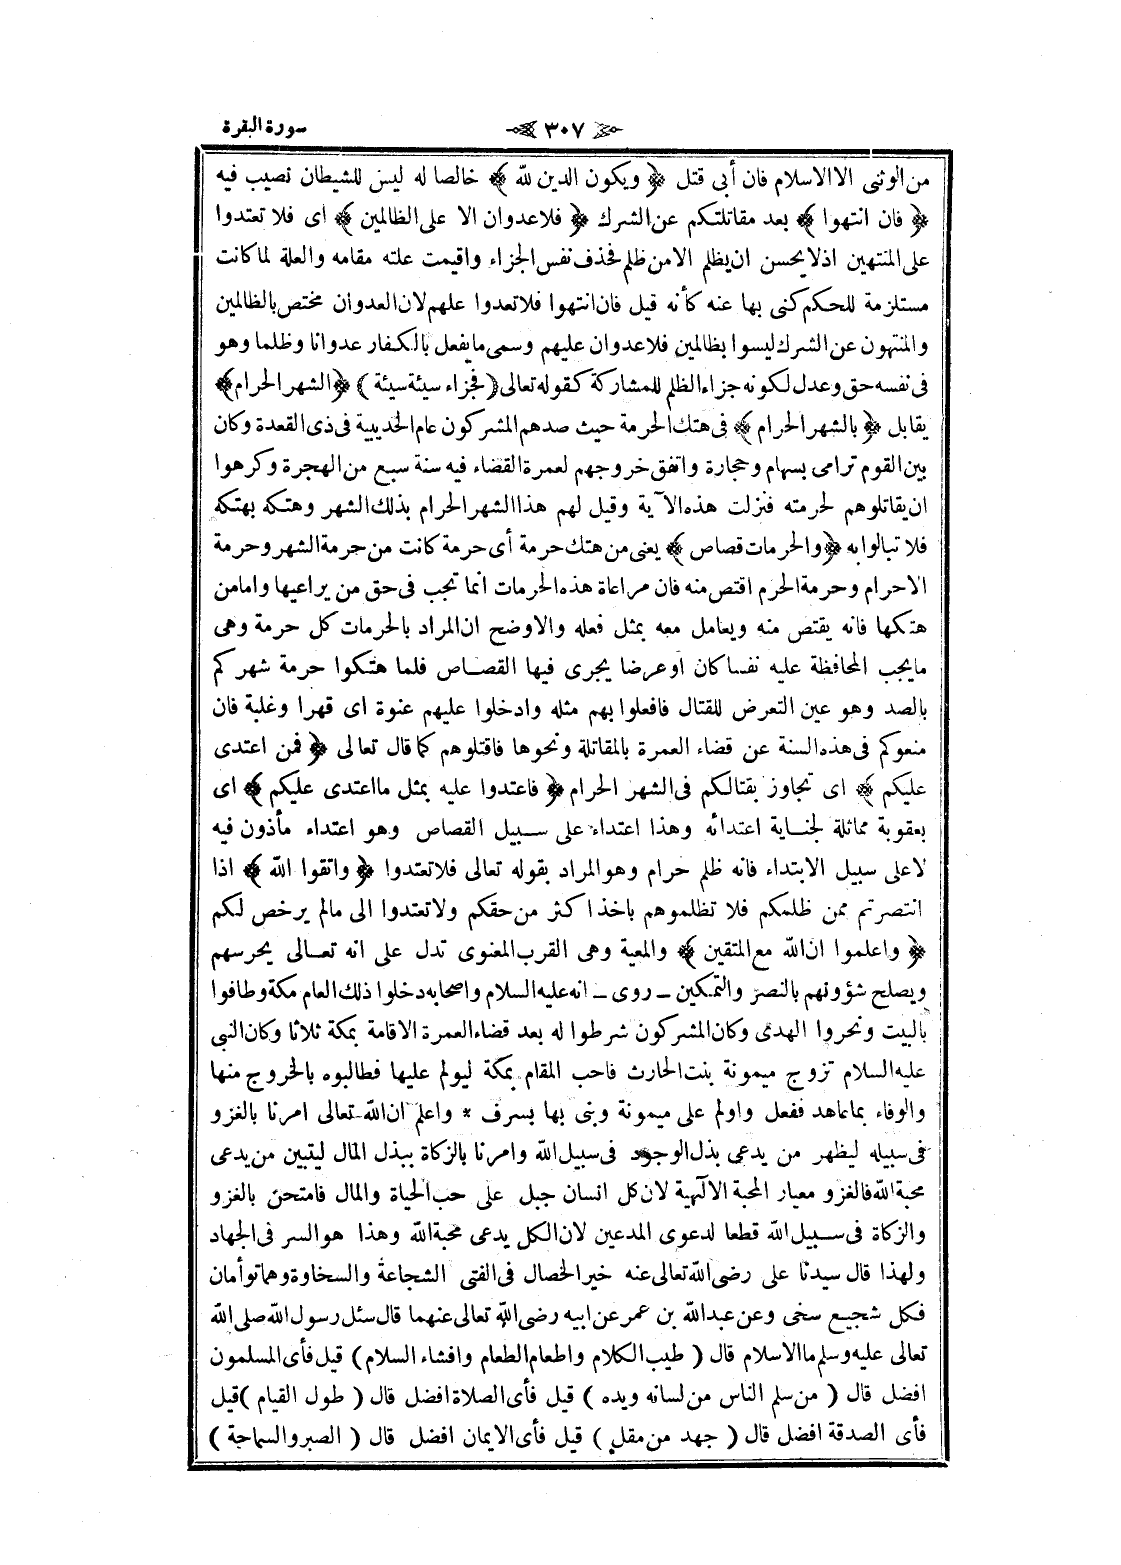 سورة البقرة
٣٠٧
من الوثنى الا الاسلام فان أبى قتل ﴿ ويكون الدين لله ﴾ خالصا له ليس للشيطان نصيب فيه
﴿ فان انتهوا ﴾ بعد مقاتلتكم عن الشرك ﴿ فلا عدوان الا على الظالمين ﴾ اى فلا تعتدوا
على المنتهين اذلا يحسن ان يظلم الا من ظلم فحذف نفس الجزاء واقيمت علته مقامه والعلة لما كانت
مستلزمة للحكم كنى بها عنه كأنه قيل فان انتهوا فلا تعدوا علهم لان العدوان مختص بالظالمين
والمنتهون عن الشرك ليسوا بظالمين فلا عدوان عليهم وسمى ما يفعل بالكفار عدوانا وظلما وهو
فى نفسه حق وعدل لكونه جزاء الظلم للمشاركة كقوله تعالى ( فجزاء سيئة سيئة ) ﴿ الشهر الحرام ﴾
يقابل ﴿ بالشهر الحرام ﴾ فى هتك الحرمة حيث صدهم المشركون عام الحديبية فى ذى القعدة وكان
بين القوم ترامى بسهام وحجارة واتفق خروجهم لعمرة القضاء فيه سنة سبع من الهجرة وكرهوا
ان يقاتلوهم لحرمته فنزلت هذه الآية وقيل لهم هذا الشهر الحرام بذلك الشهر وهتكه بهتكه
فلا تبالوا به ﴿ والحرمات قصاص ﴾ يعنى من هتك حرمة أى حرمة كانت من حرمة الشهر وحرمة
الاحرام وحرمة الحرم اقتص منه فان مراعاة هذه الحرمات انما تجب فى حق من يراعيها واما من
هتكها فانه يقتص منه ويعامل معه بمثل فعله والاوضح ان المراد بالحرمات كل حرمة وهى
ما يجب المحافظة عليه نفسا كان او عرضا يجرى فيها القصاص فلما هتكوا حرمة شهركم
بالصد وهو عين التعرض للقتال فافعلوا بهم مثله وادخلوا عليهم عنوة اى قهرا وغلبة فان
منعوكم فى هذه السنة عن قضاء العمرة بالمقاتلة ونحوها فاقتلوهم كما قال تعالى ﴿ فمن اعتدى
عليكم ﴾ اى تجاوز بقتالكم فى الشهر الحرام ﴿ فاعتدوا عليه بمثل ما اعتدى عليكم ﴾ اى
بعقوبة مماثلة لجناية اعتدائه وهذا اعتداء على سبيل القصاص وهو اعتداء مأذون فيه
لا على سبيل الابتداء فانه ظلم حرام وهو المراد بقوله تعالى فلا تعتدوا ﴿ واتقوا الله ﴾ اذا
انتصرتم ممن ظلمكم فلا تظلموهم باخذ اكثر من حقكم ولا تعتدوا الى مالم يرخص لكم
﴿ واعلموا ان الله مع المتقين ﴾ والمعية وهى القرب المعنوى تدل على انه تعالى يحرسهم
ويصلح شؤونهم بالنصر والتمكين ـ روى ـ انه عليه السلام واصحابه دخلوا ذلك العام مكة وطافوا
بالبيت ونحروا الهدى وكان المشركون شرطوا له بعد قضاء العمرة الاقامة بمكة ثلاثا وكان النبى
عليه السلام تزوج ميمونة بنت الحارث فاحب المقام بمكة ليولم عليها فطالبوه بالخروج منها
والوفاء بما عاهد ففعل واولم على ميمونة وبنى بها بسرف * واعلم ان الله تعالى امرنا بالغزو
فى سبيله ليظهر من يدعى بذل الوجود فى سبيل الله وامرنا بالزكاة ببذل المال ليتبين من يدعى
محبة الله فالغزو معيار المحبة الآلهية لان كل انسان جبل على حب الحياة والمال فامتحن بالغزو
والزكاة فى سبيل الله قطعا لدعوى المدعين لان الكل يدعى محبة الله وهذا هو السر فى الجهاد
ولهذا قال سيدنا على رضى الله تعالى عنه خير الخصال فى الفتى الشجاعة والسخاوة وهما توأمان
فكل شجيع سخى وعن عبد الله بن عمر عن ابيه رضى الله تعالى عنهما قال سئل رسول الله صلى الله
تعالى عليه وسلم ما الاسلام قال ( طيب الكلام واطعام الطعام وافشاء السلام ) قيل فأى المسلمون
افضل قال ( من سلم الناس من لسانه ويده ) قيل فأى الصلاة افضل قال ( طول القيام ) قيل
فأى الصدقة افضل قال ( جهد من مقل ) قيل فأى الايمان افضل قال ( الصبر والسماحة )